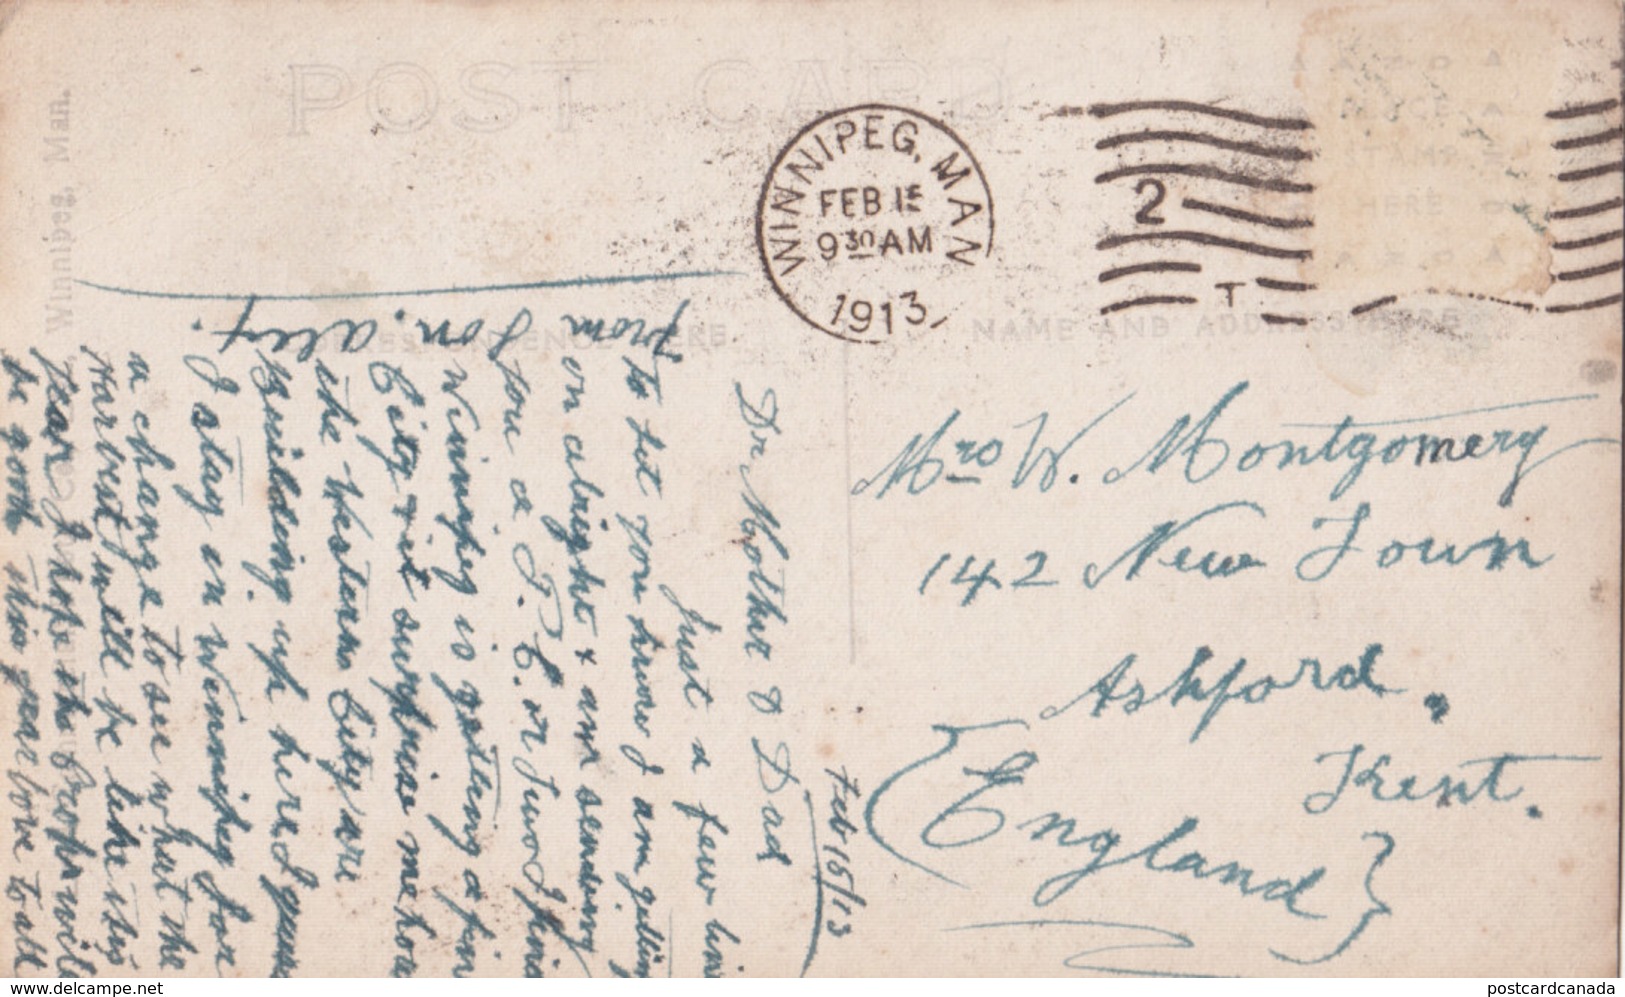 POST CARD
WINNIPEG, MAN
FEB 15
9 30 AM
1913
2
T
PLACE
STAMP
HERE
NAME AND ADDRESS HERE
CORRESPONDENCE HERE
Winnipeg, Man.
Mrs W. Montgomery
142 New Town
Ashford.
Kent.
(England)
Feb 15/13
Dr Mother & Dad
Just a few lin
to let you know I am getting
on alright & am sending
you a P.C. or Two I
Winnipeg is getting a fin
City & it surprise me how
the Western City are
Building up here I guess
I stay in Winnipeg for
a change to see what the
Harvest will be like this
year I hope the Crops will
be good this year love to all
from Son. alent.
www.delcampe.net
postcardcanada